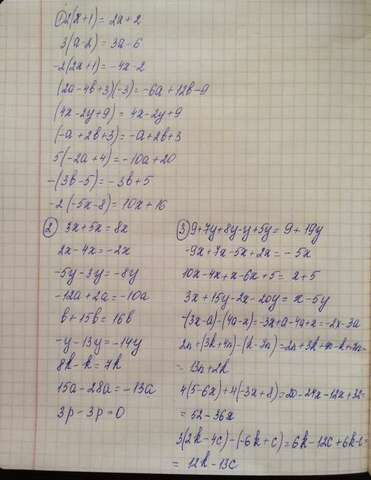 ① 2(x+1)= 2x+2
3(a-2)= 3a-6
-2(2x+1)= -4x-2
(2a-4b+3)(-3)= -6a+12b-9
(4x-2y+9)= 4x-2y+9
(-a+2b+3)=-a+2b+3
5(-2a+4)=-10a+20
-(3b-5)=-3b+5
-2(-5x-8)= 10x+16
② 3x+5x= 8x
2x-4x=-2x
-5y-3y=-8y
-12a+2a=-10a
b+15b= 16b
-y-13y=-14y
8k-k= 7k
15a-28a=-13a
3p-3p=0
③ 9+7y+8y-y+5y= 9+19y
-9x+7x-5x+2x=-5x
10x-4x+x-6x+5= x+5
3x+15y-2x-20y= x-5y
-(3x-a)-(4a-x)=-3x+a-4a+x=-2x-3a
2n+(3k+4n)-(k-7n)=2n+3k+4n-k+7n=
= 13n+2k
4(5-6x)+4(-3x+8)=20-24x-12x+32=
= 52-36x
3(2k-4c)-(-6k+c)=6k-12c+6k-c
= 12k-13c